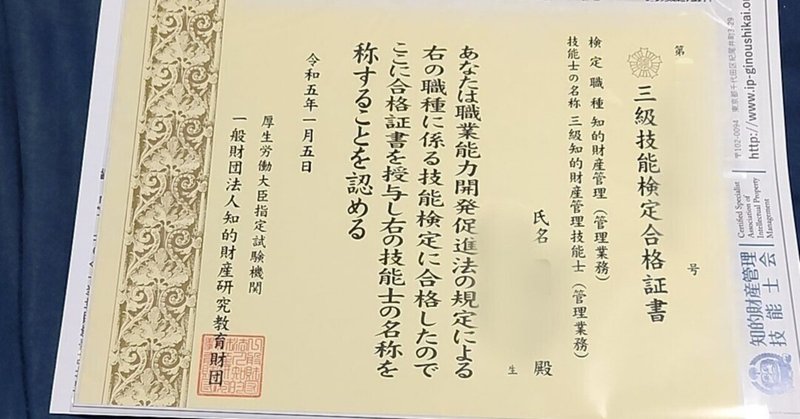 第　　号
三級技能検定合格証書
検定職種 知的財産管理（管理業務）
技能士の名称 三級知的財産管理技能士（管理業務）
氏名
殿
生
あなたは職業能力開発促進法の規定による
右の職種に係る技能検定に合格したので
ここに合格証書を授与し右の技能士の名称を
称することを認める
令和五年一月五日
厚生労働大臣指定試験機関
一般財団法人知的財産研究教育財団
http://www.ip-ginoushikai.org
〒102-0094
知的財産管理
技能士会
Certified Specialist
Association of
Intellectual Property
Management